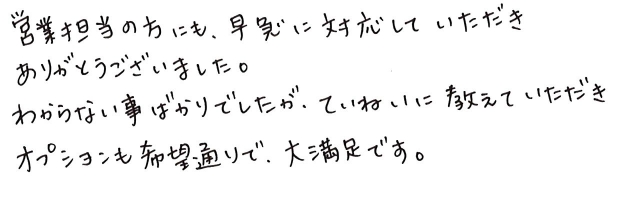 営業担当の方にも、早急に対応していただき
ありがとうございました。
わからない事ばかりでしたが、ていねいに教えていただき
オプションも希望通りで、大満足です。